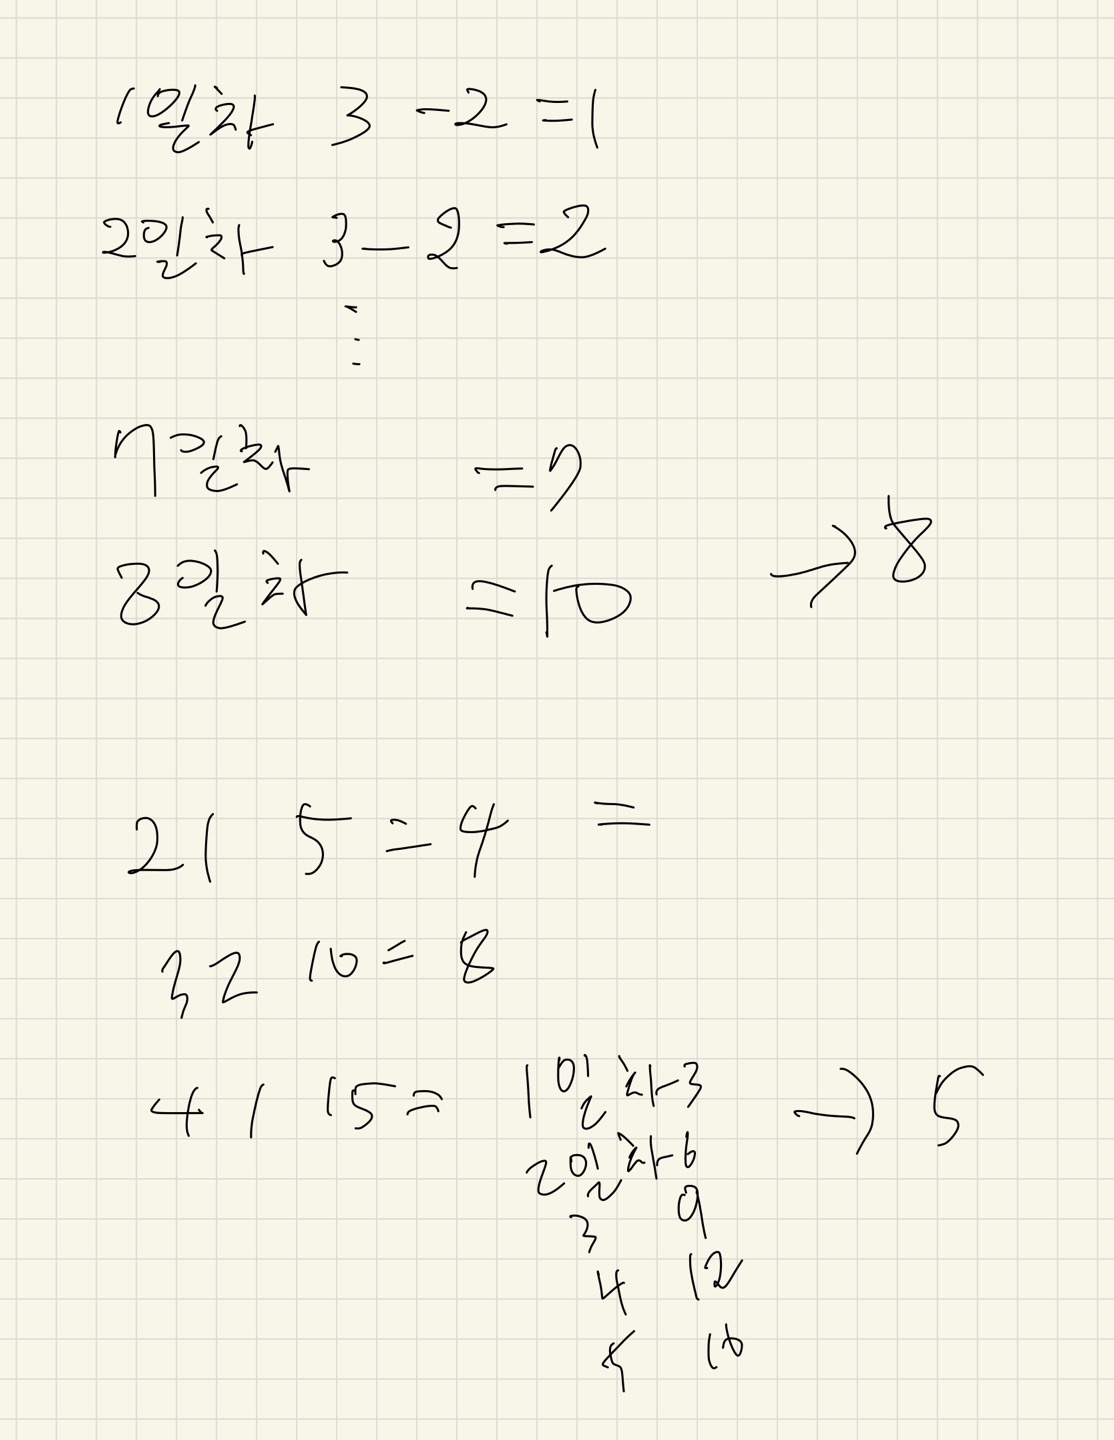 1일차 3 - 2 = 1
2일차 3 - 2 = 2
⋮
7일차 = 7
8일차 = 10 → 8
21 5 = 4 =
32 10 = 8
41 15 = 1일차 3 → 5
2일차 6
3 9
4 12
5